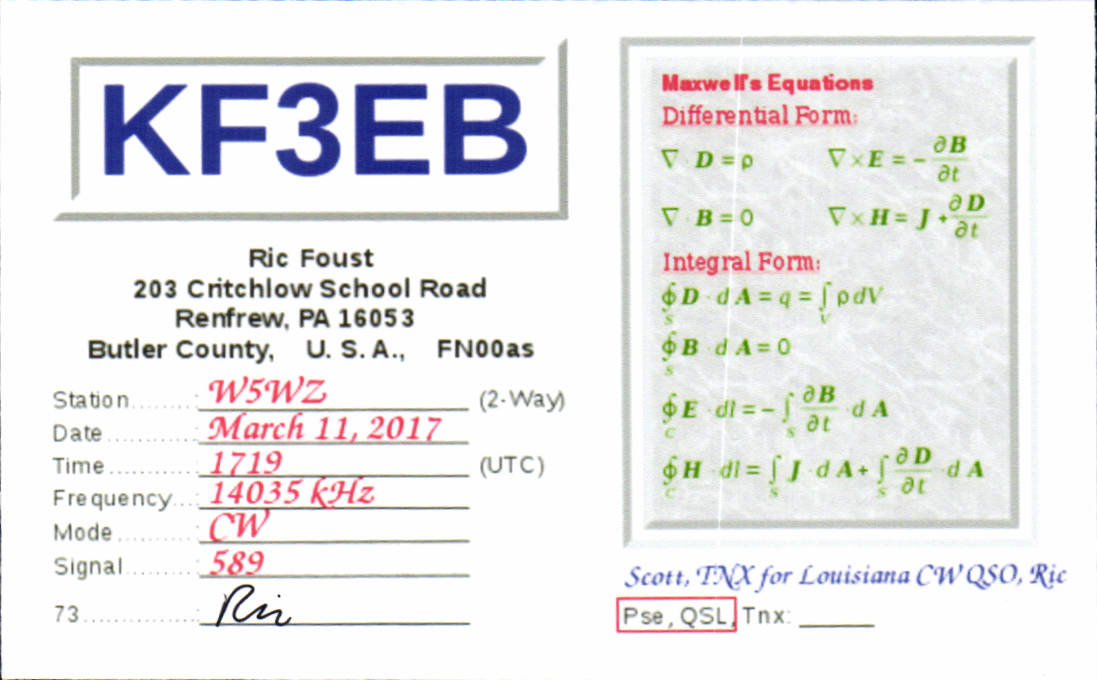 KF3EB
Ric Foust
203 Critchlow School Road
Renfrew, PA 16053
Butler County, U. S. A., FN00as
Station........: W5WZ (2-Way)
Date............: March 11, 2017
Time............: 1719 (UTC)
Frequency...: 14035 kHz
Mode..........: CW
Signal.........: 589
73...............: Ric
Maxwell's Equations
Differential Form:
∇ · D = ρ ∇ × E = - ∂B/∂t
∇ · B = 0 ∇ × H = J + ∂D/∂t
Integral Form:
∮S D · d A = q = ∫V ρ dV
∮S B · d A = 0
∮C E · dl = - ∫S ∂B/∂t · d A
∮C H · dl = ∫S J · d A + ∫S ∂D/∂t · d A
Scott, TNX for Louisiana CW QSO, Ric
Pse, QSL, Tnx: ______